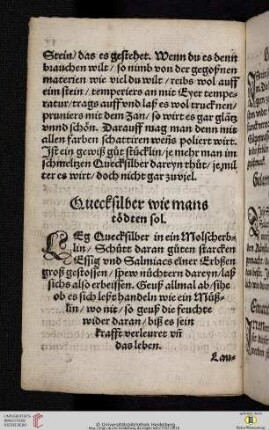 Stein/das es gestehet. Wenn du es denn
brauchen wilt/so nimb von der gegoßnen
materien wie viel du wilt/reibs wol auff
eim stein/temperiers an mit Eyer tempe-
ratur/trags auff vnd laß es wol trucknen/
pruniers mit dem Zan/so wirt es gar glätz
vnnd schön. Darauff mag man denn mit
allen farben schattiren wenns poliert wirt.
Ist ein gewiß gůt stücklin/je mehr man im
schmeltzen Quecksilber dareyn thůt/je mil
ter es wirt/doch nicht gar zuviel.
Quecksilber wie mans
tödten sol.
LEg Quecksilber in ein Molscherb-
lin/Schüt daran gůten starcken
Essig vnd Salmiacs einer Erbßen
groß gestossen/spew nüchtern dareyn/laß
sichs also erbeissen. Geuß allmal ab/sihe
ob es sich leßt handeln wie ein Müß-
lin/wo nit/so geuß die feuchte
wider daran/biß es sein
krafft verleuret vñ
das leben.
Lau-
UNIVERSITÄTS-
BIBLIOTHEK
HEIDELBERG
© Universitätsbibliothek Heidelberg